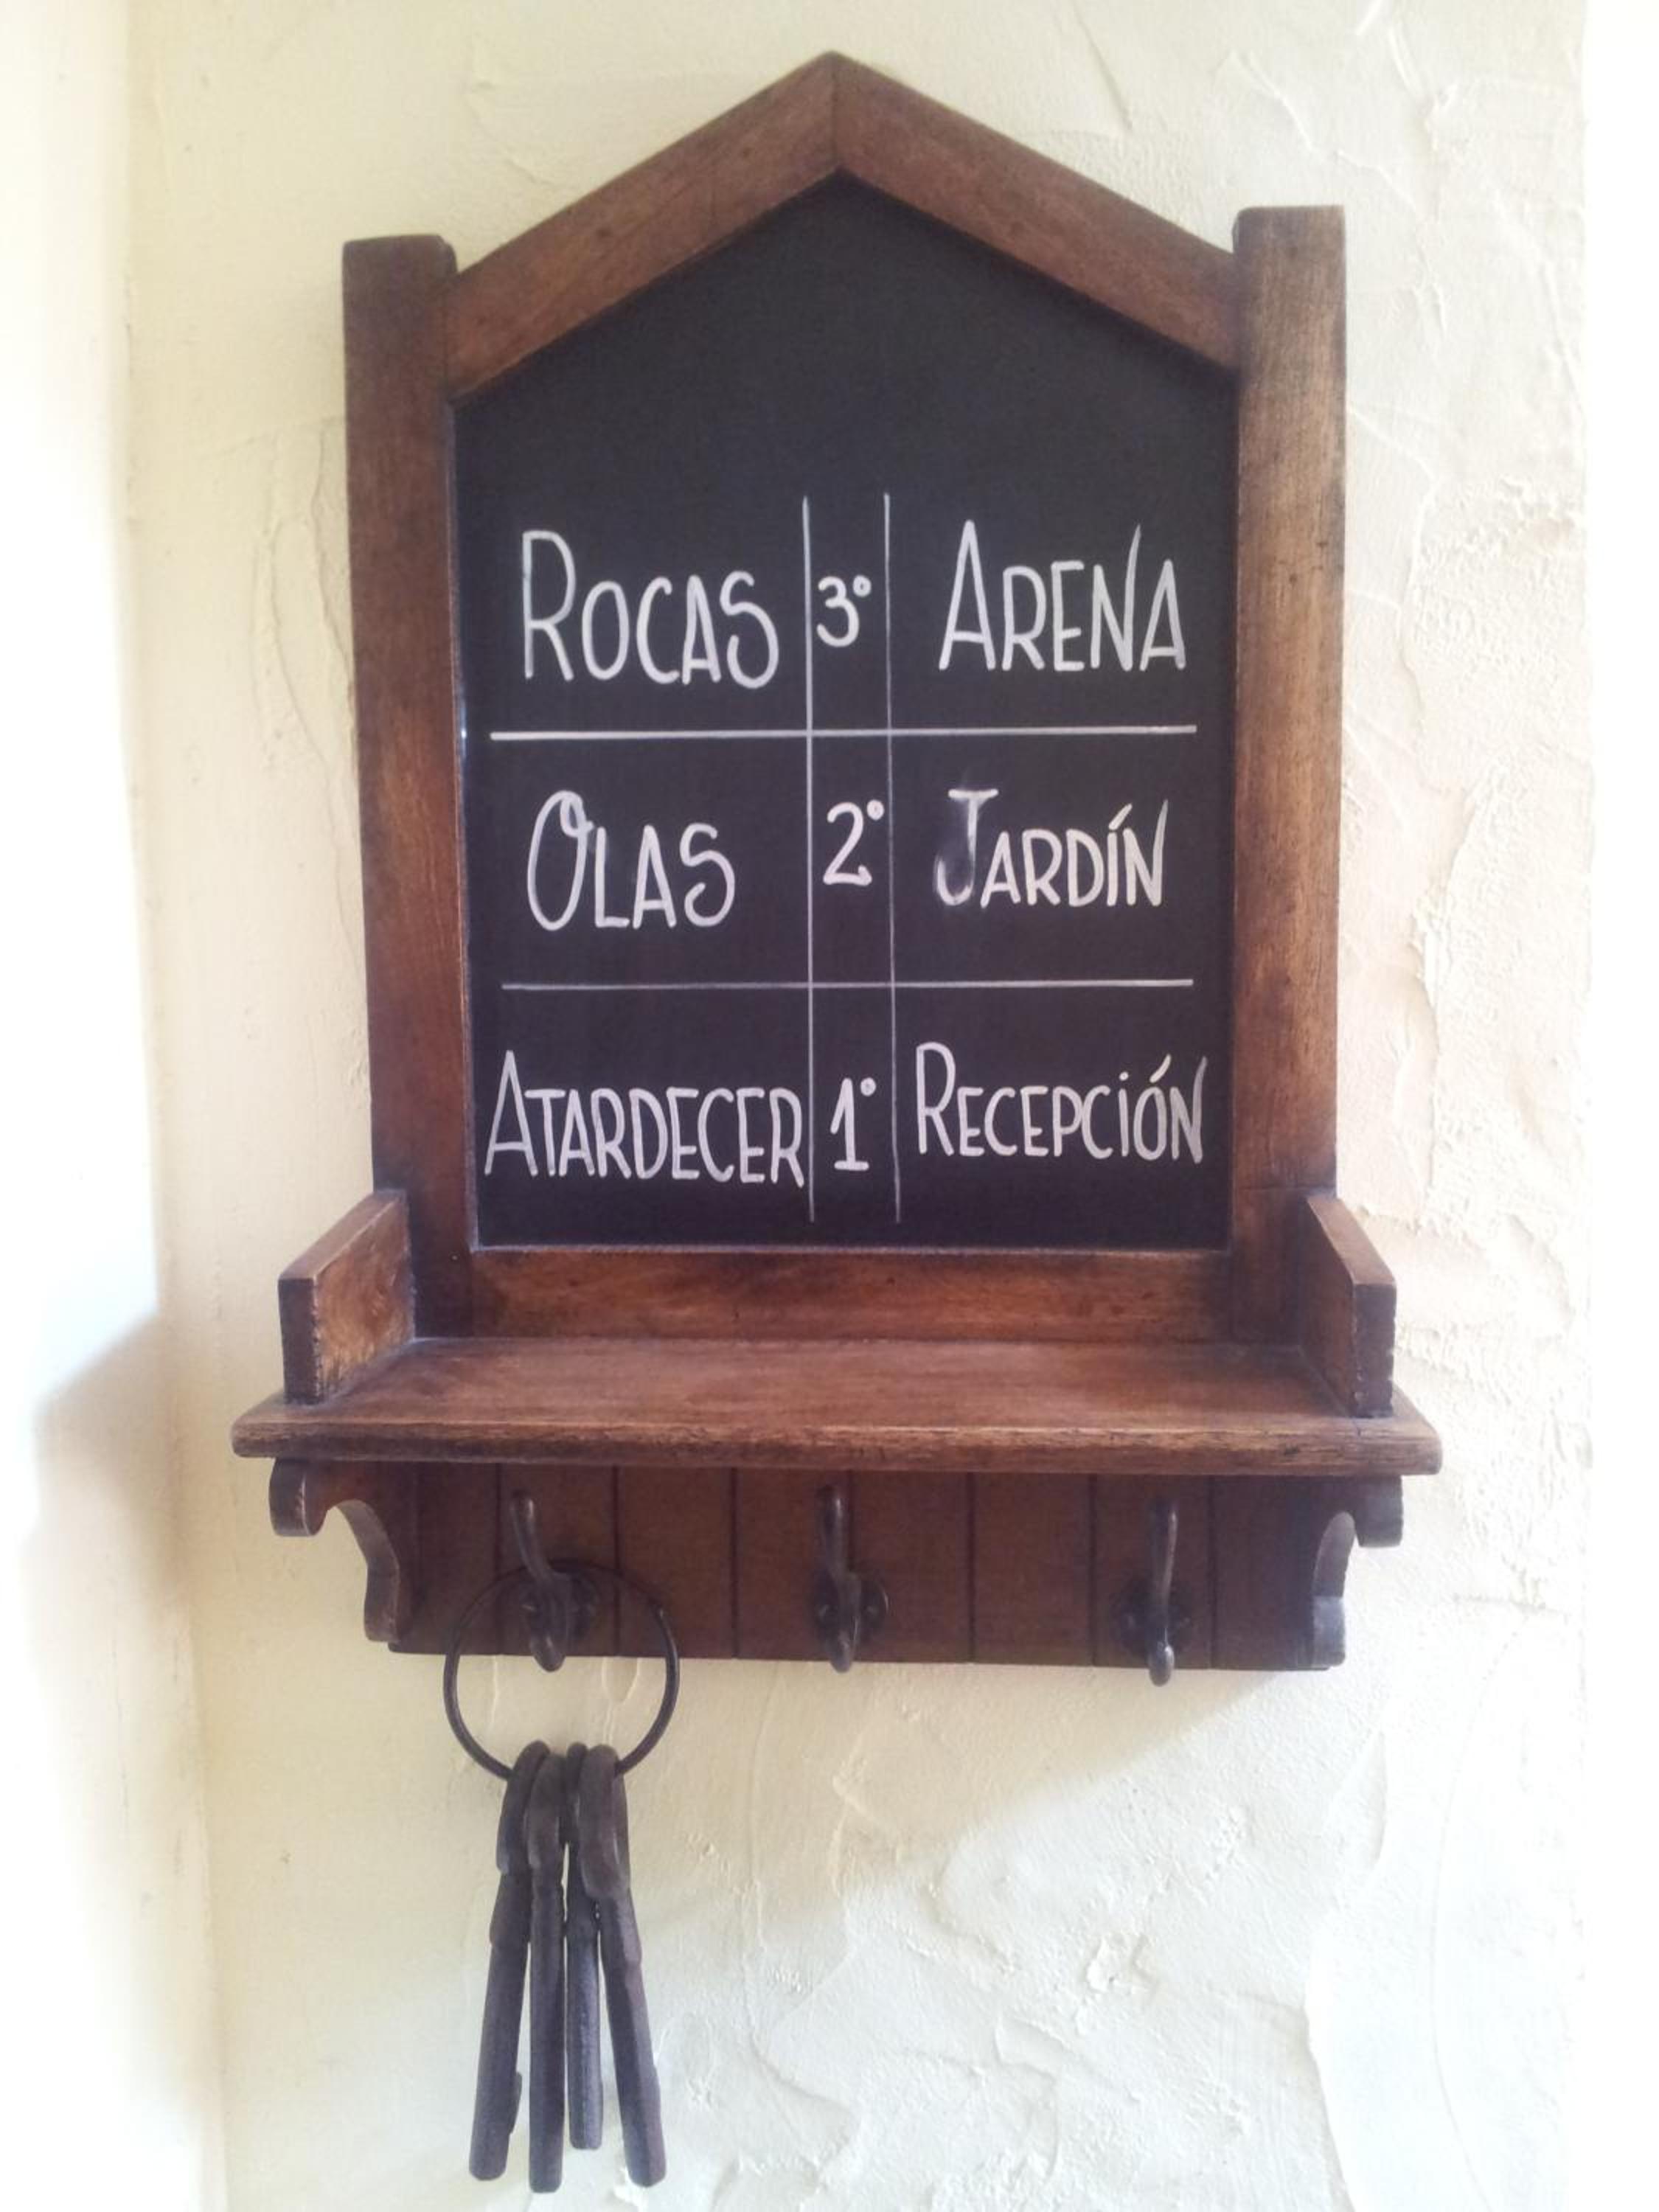 ROCAS 3° ARENA
OLAS 2° JARDÍN
ATARDECER 1° RECEPCIÓN